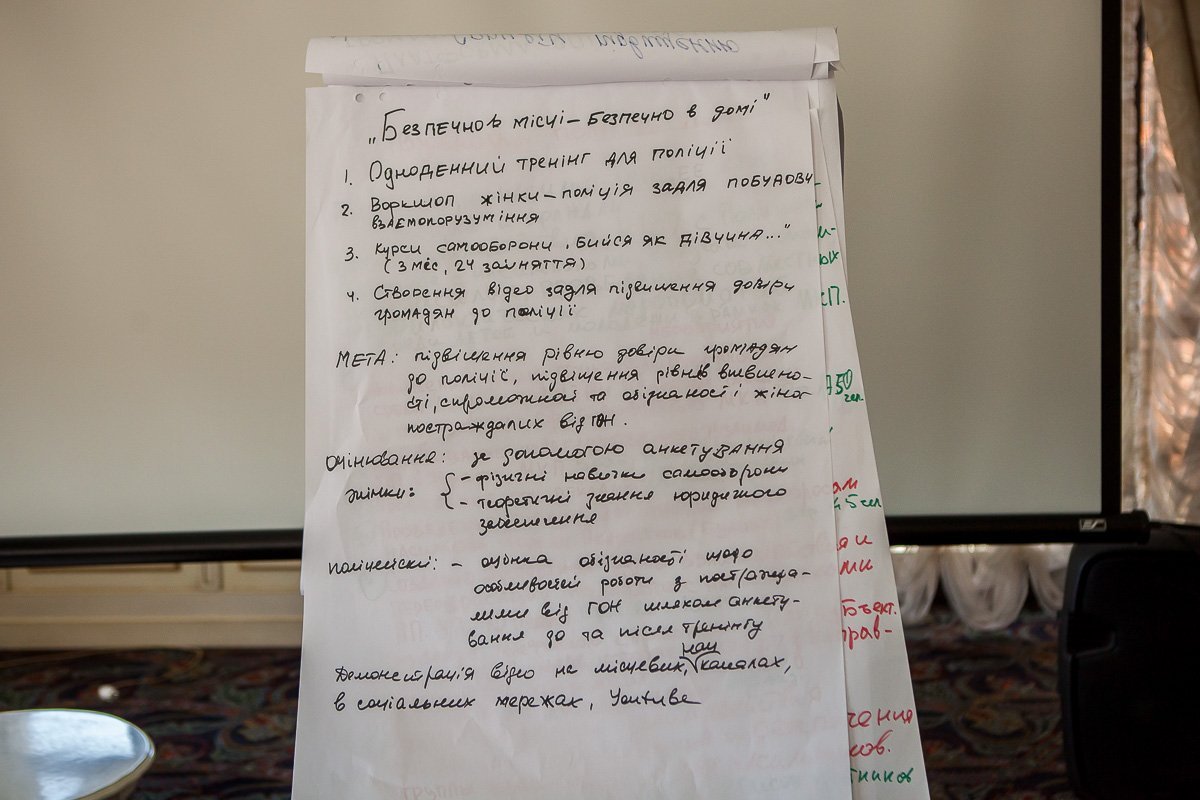 сприяти підвищенню
„Безпечно в місці – безпечно в домі"
1. Одноденний тренінг для поліціїї
2. Воркшоп жінки – поліція задля побудови
взаємопорузуміння
3. Курси самооборони „Бийся як дівчина..."
(3 мес, 24 зайняття)
4. Створення відео задля підвишення довіри
громадян до поліціїї
МЕТА: підвіщення рівню довіри громадян
до поліціїї, підвіщення рівнів впевнено-
сті, спроможної та обізнаності жінок
постраждалих від ГОН.
Оцінювання: за допомогою анкетування
Жінки: – фізичні навички самооборони
– теоретичні знання юридичного
забеспечення
Поліцейські: – оцінка обізнаності щодо
особливостей роботи з постражда-
лими від ГОН шляхом анкету-
вання до та після тренінгу
Демонстрація відео на місцевих, нац каналах,
в соціальних мережах, Youtube
сП.
750
чел.
45 сел
ями
бъект.
прав-
чения
ков.
тников